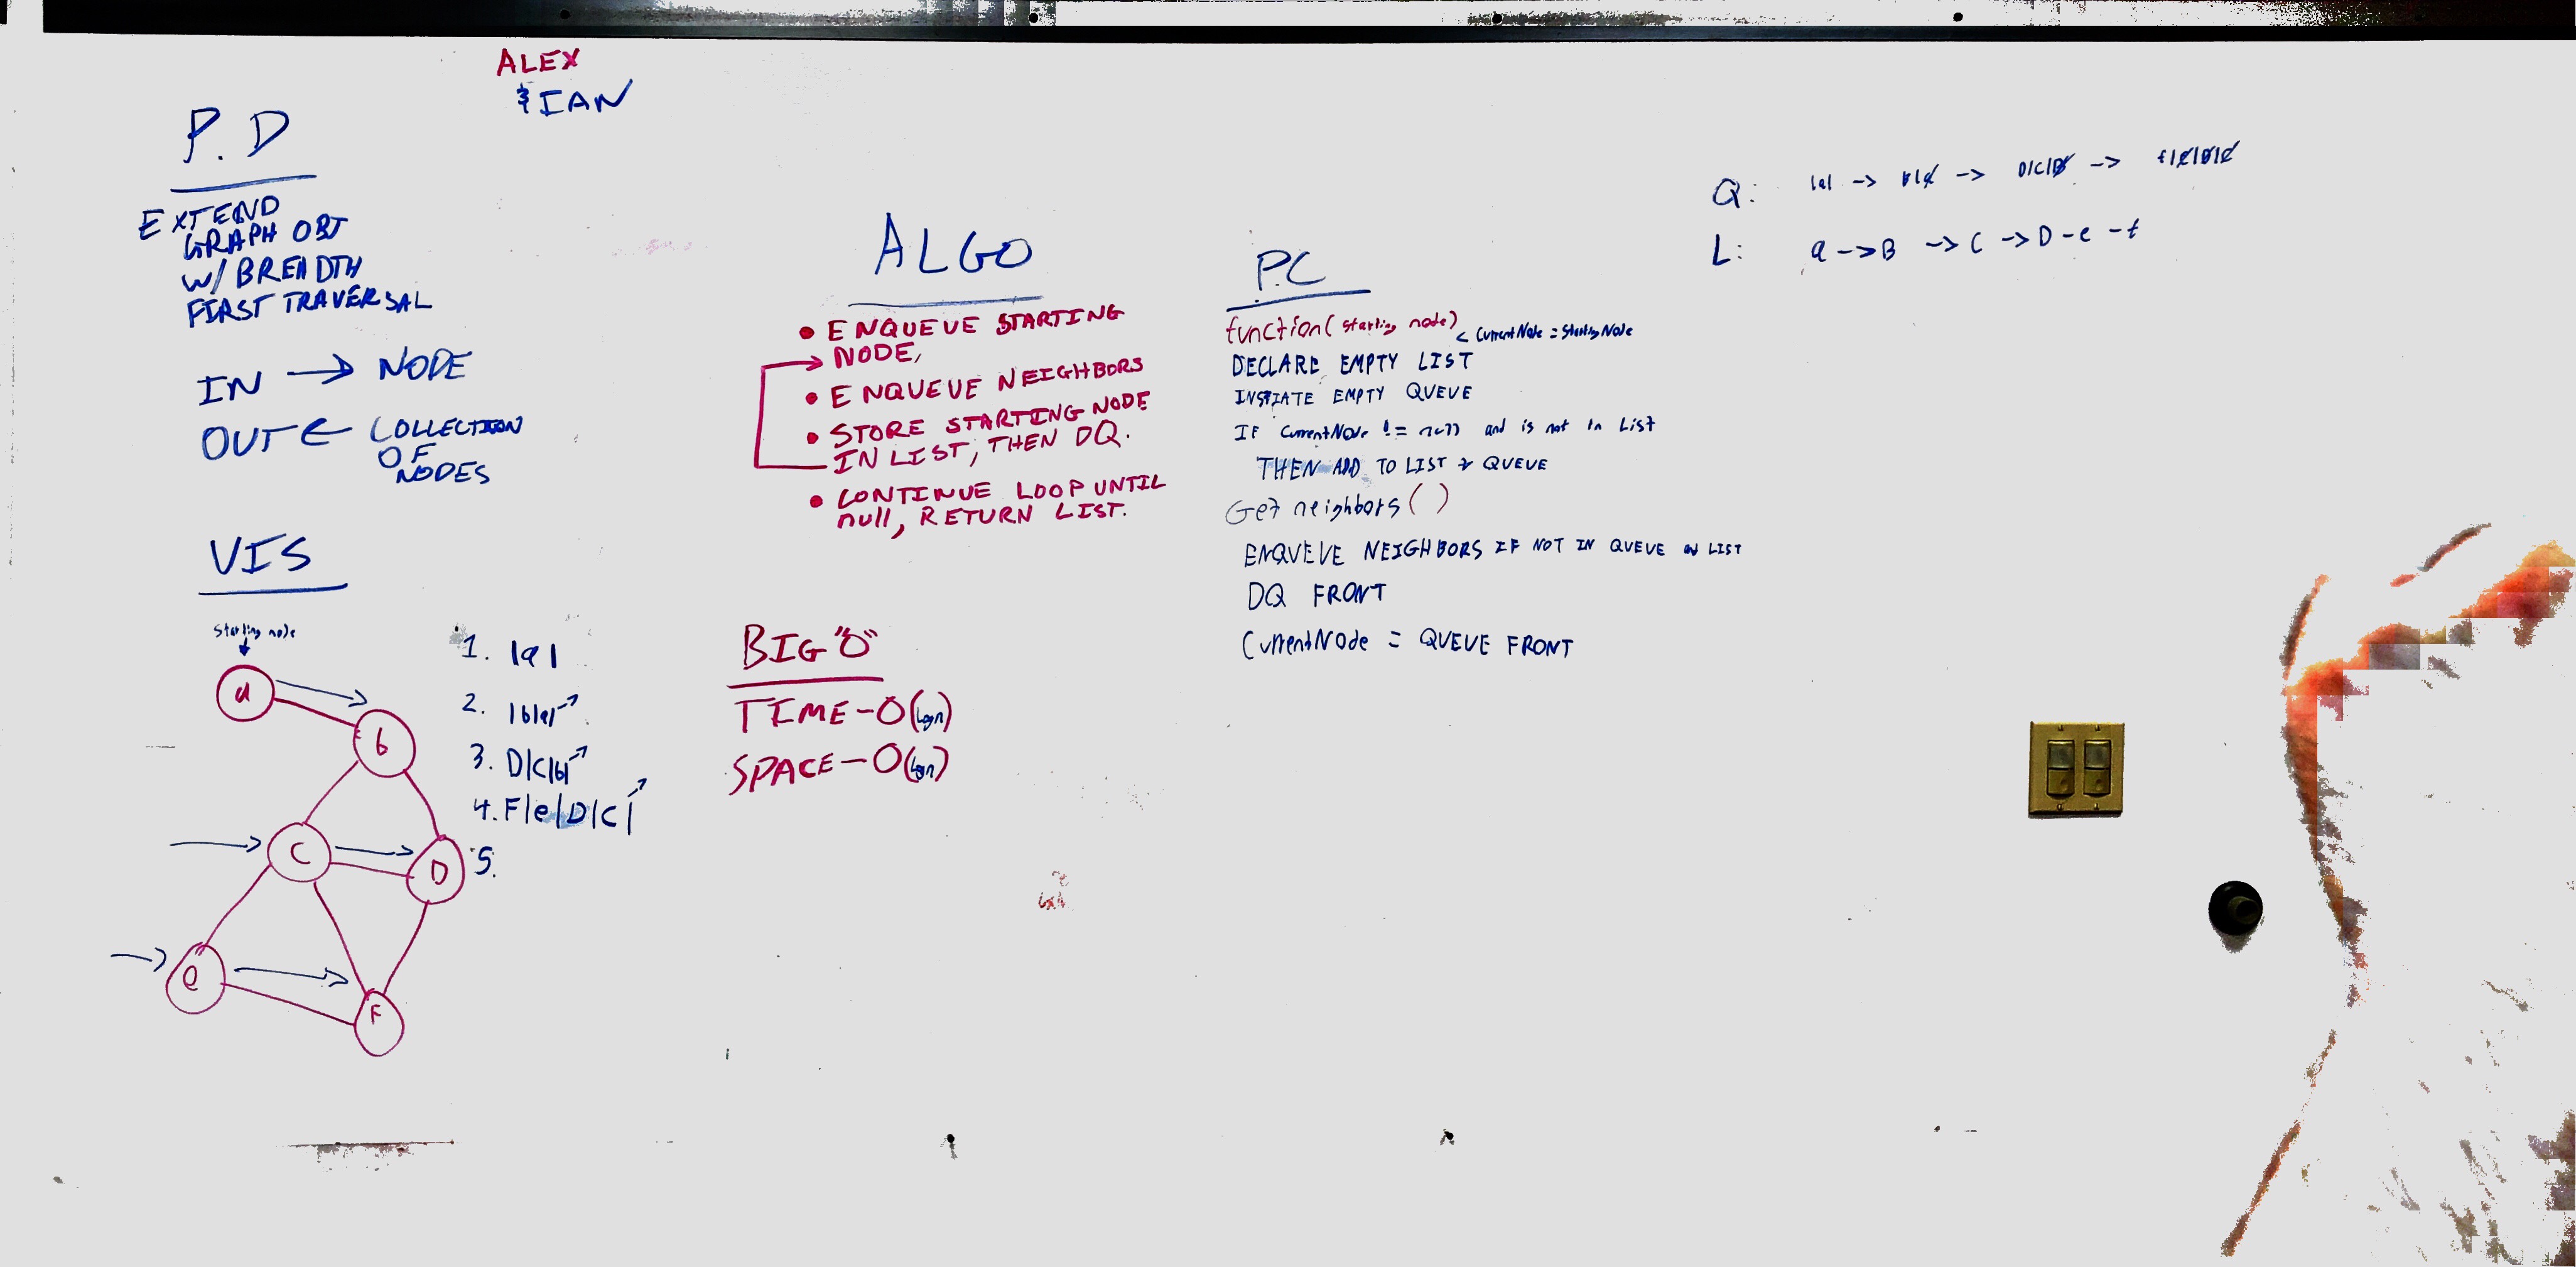 ALEX
& IAN
P.D
EXTEND
GRAPH OBJ
W/ BREADTH
FIRST TRAVERSAL
IN -> NODE
OUT <- COLLECTION
OF
NODES
VIS
Starting node
a
b
C
D
e
F
1. |a|
2. |b|a|
3. D|C|b|
4. F|e|D|C|
5.
ALGO
• ENQUEUE STARTING
NODE,
• ENQUEUE NEIGHBORS
• STORE STARTING NODE
IN LIST, THEN DQ.
• CONTINUE LOOP UNTIL
null, RETURN LIST.
BIG "O"
TIME - O(Log n)
SPACE - O(Log n)
P.C
function( starting node) < CurrentNode = StartingNode
DECLARE EMPTY LIST
EMPTY QUEUE
IF CurrentNode != null and is not in List
THEN ADD TO LIST & QUEUE
Get neighbors( )
ENQUEUE NEIGHBORS IF NOT IN QUEUE LIST
DQ FRONT
CurrentNode = QUEUE FRONT
Q: |a| -> B|a -> D|C|B -> 
L: a -> B -> C -> D - e - f